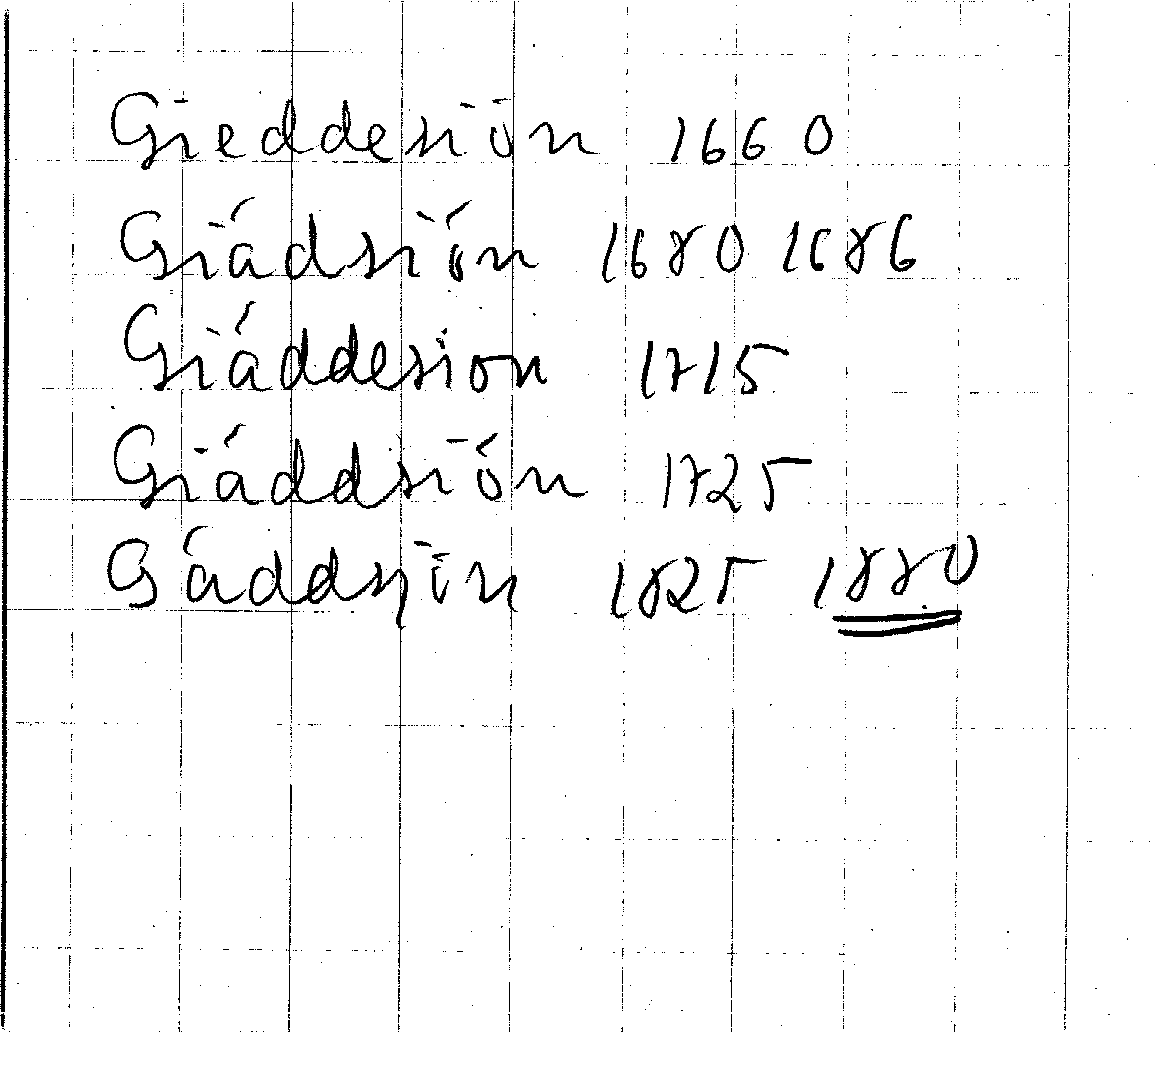 Gieddesiön 1660
Giádsión 1680 1686
Giáddesion 1715
Giáddsión 1725
Gáddsjön 1825 1880